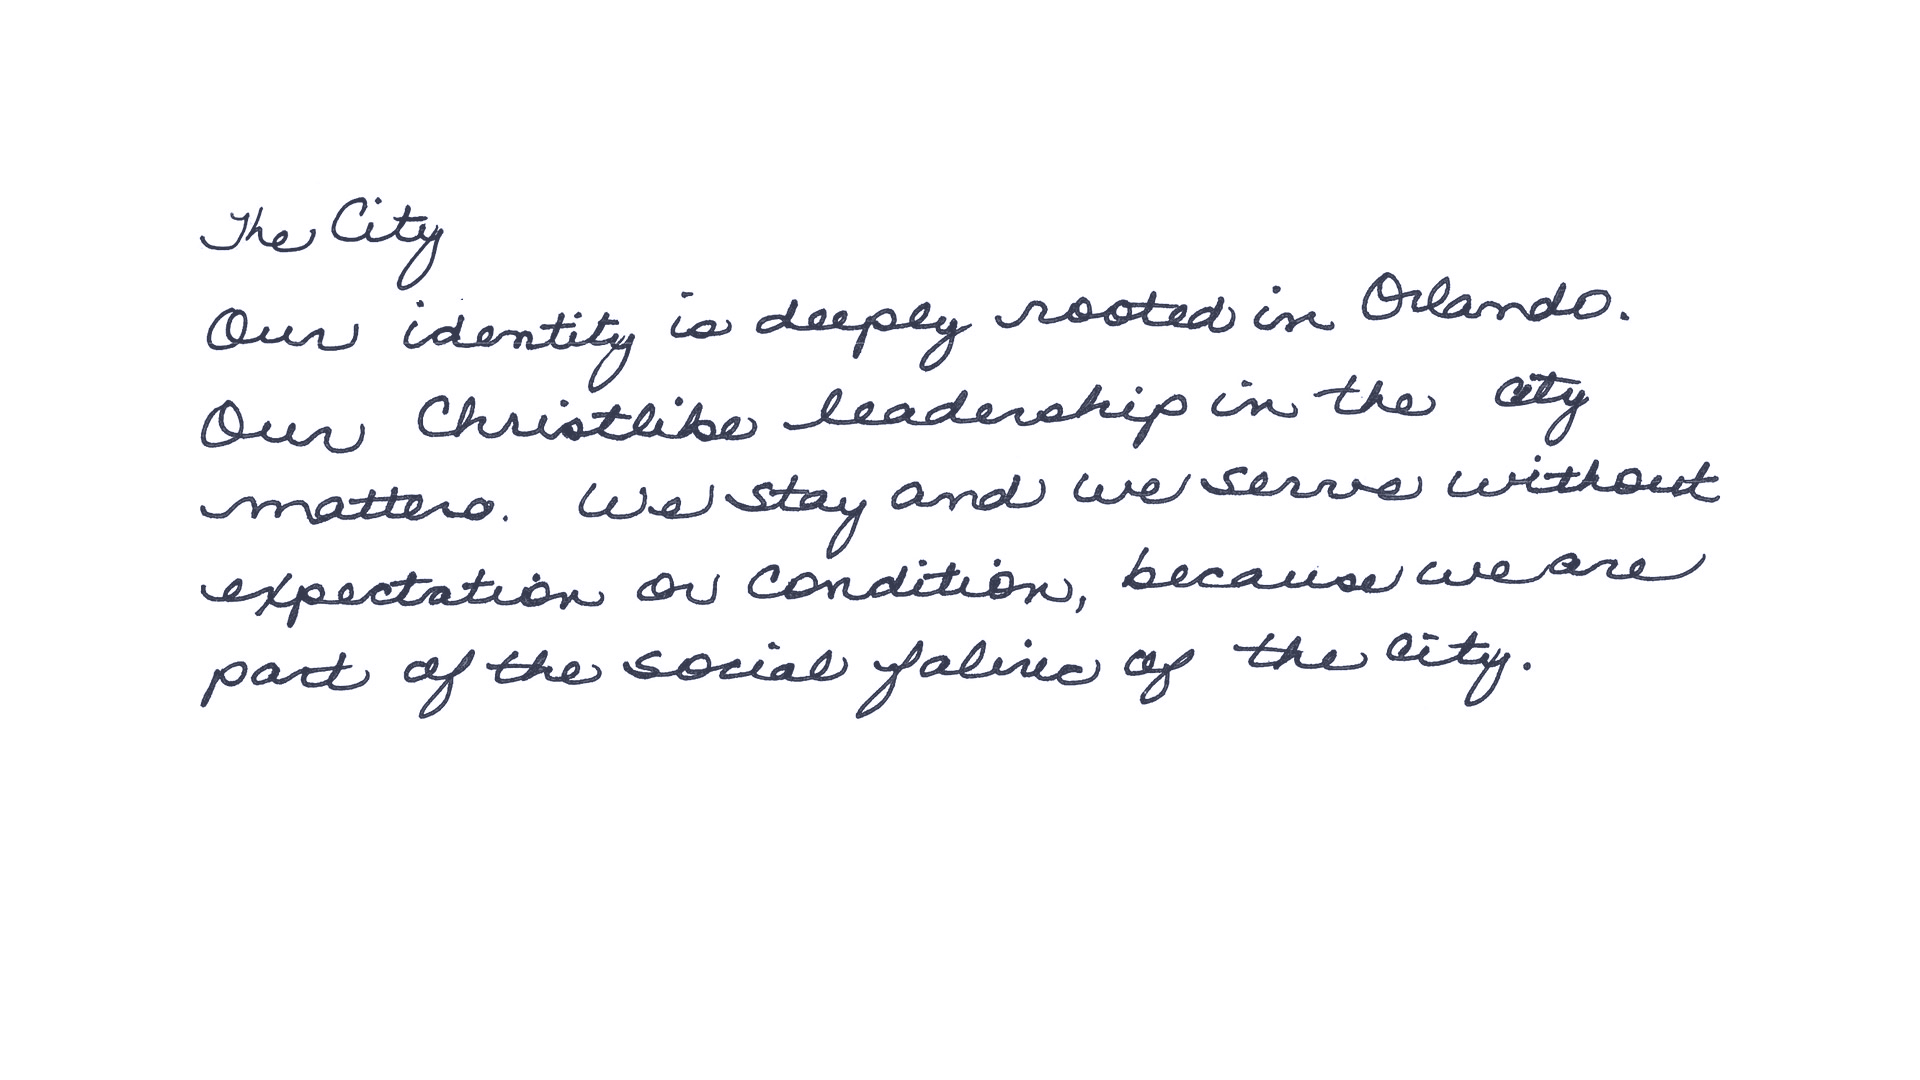 The City
Our identity is deeply rooted in Orlando.
Our Christlike leadership in the city
matters. We stay and we serve without
expectation or condition, because we are
part of the social fabric of the city.